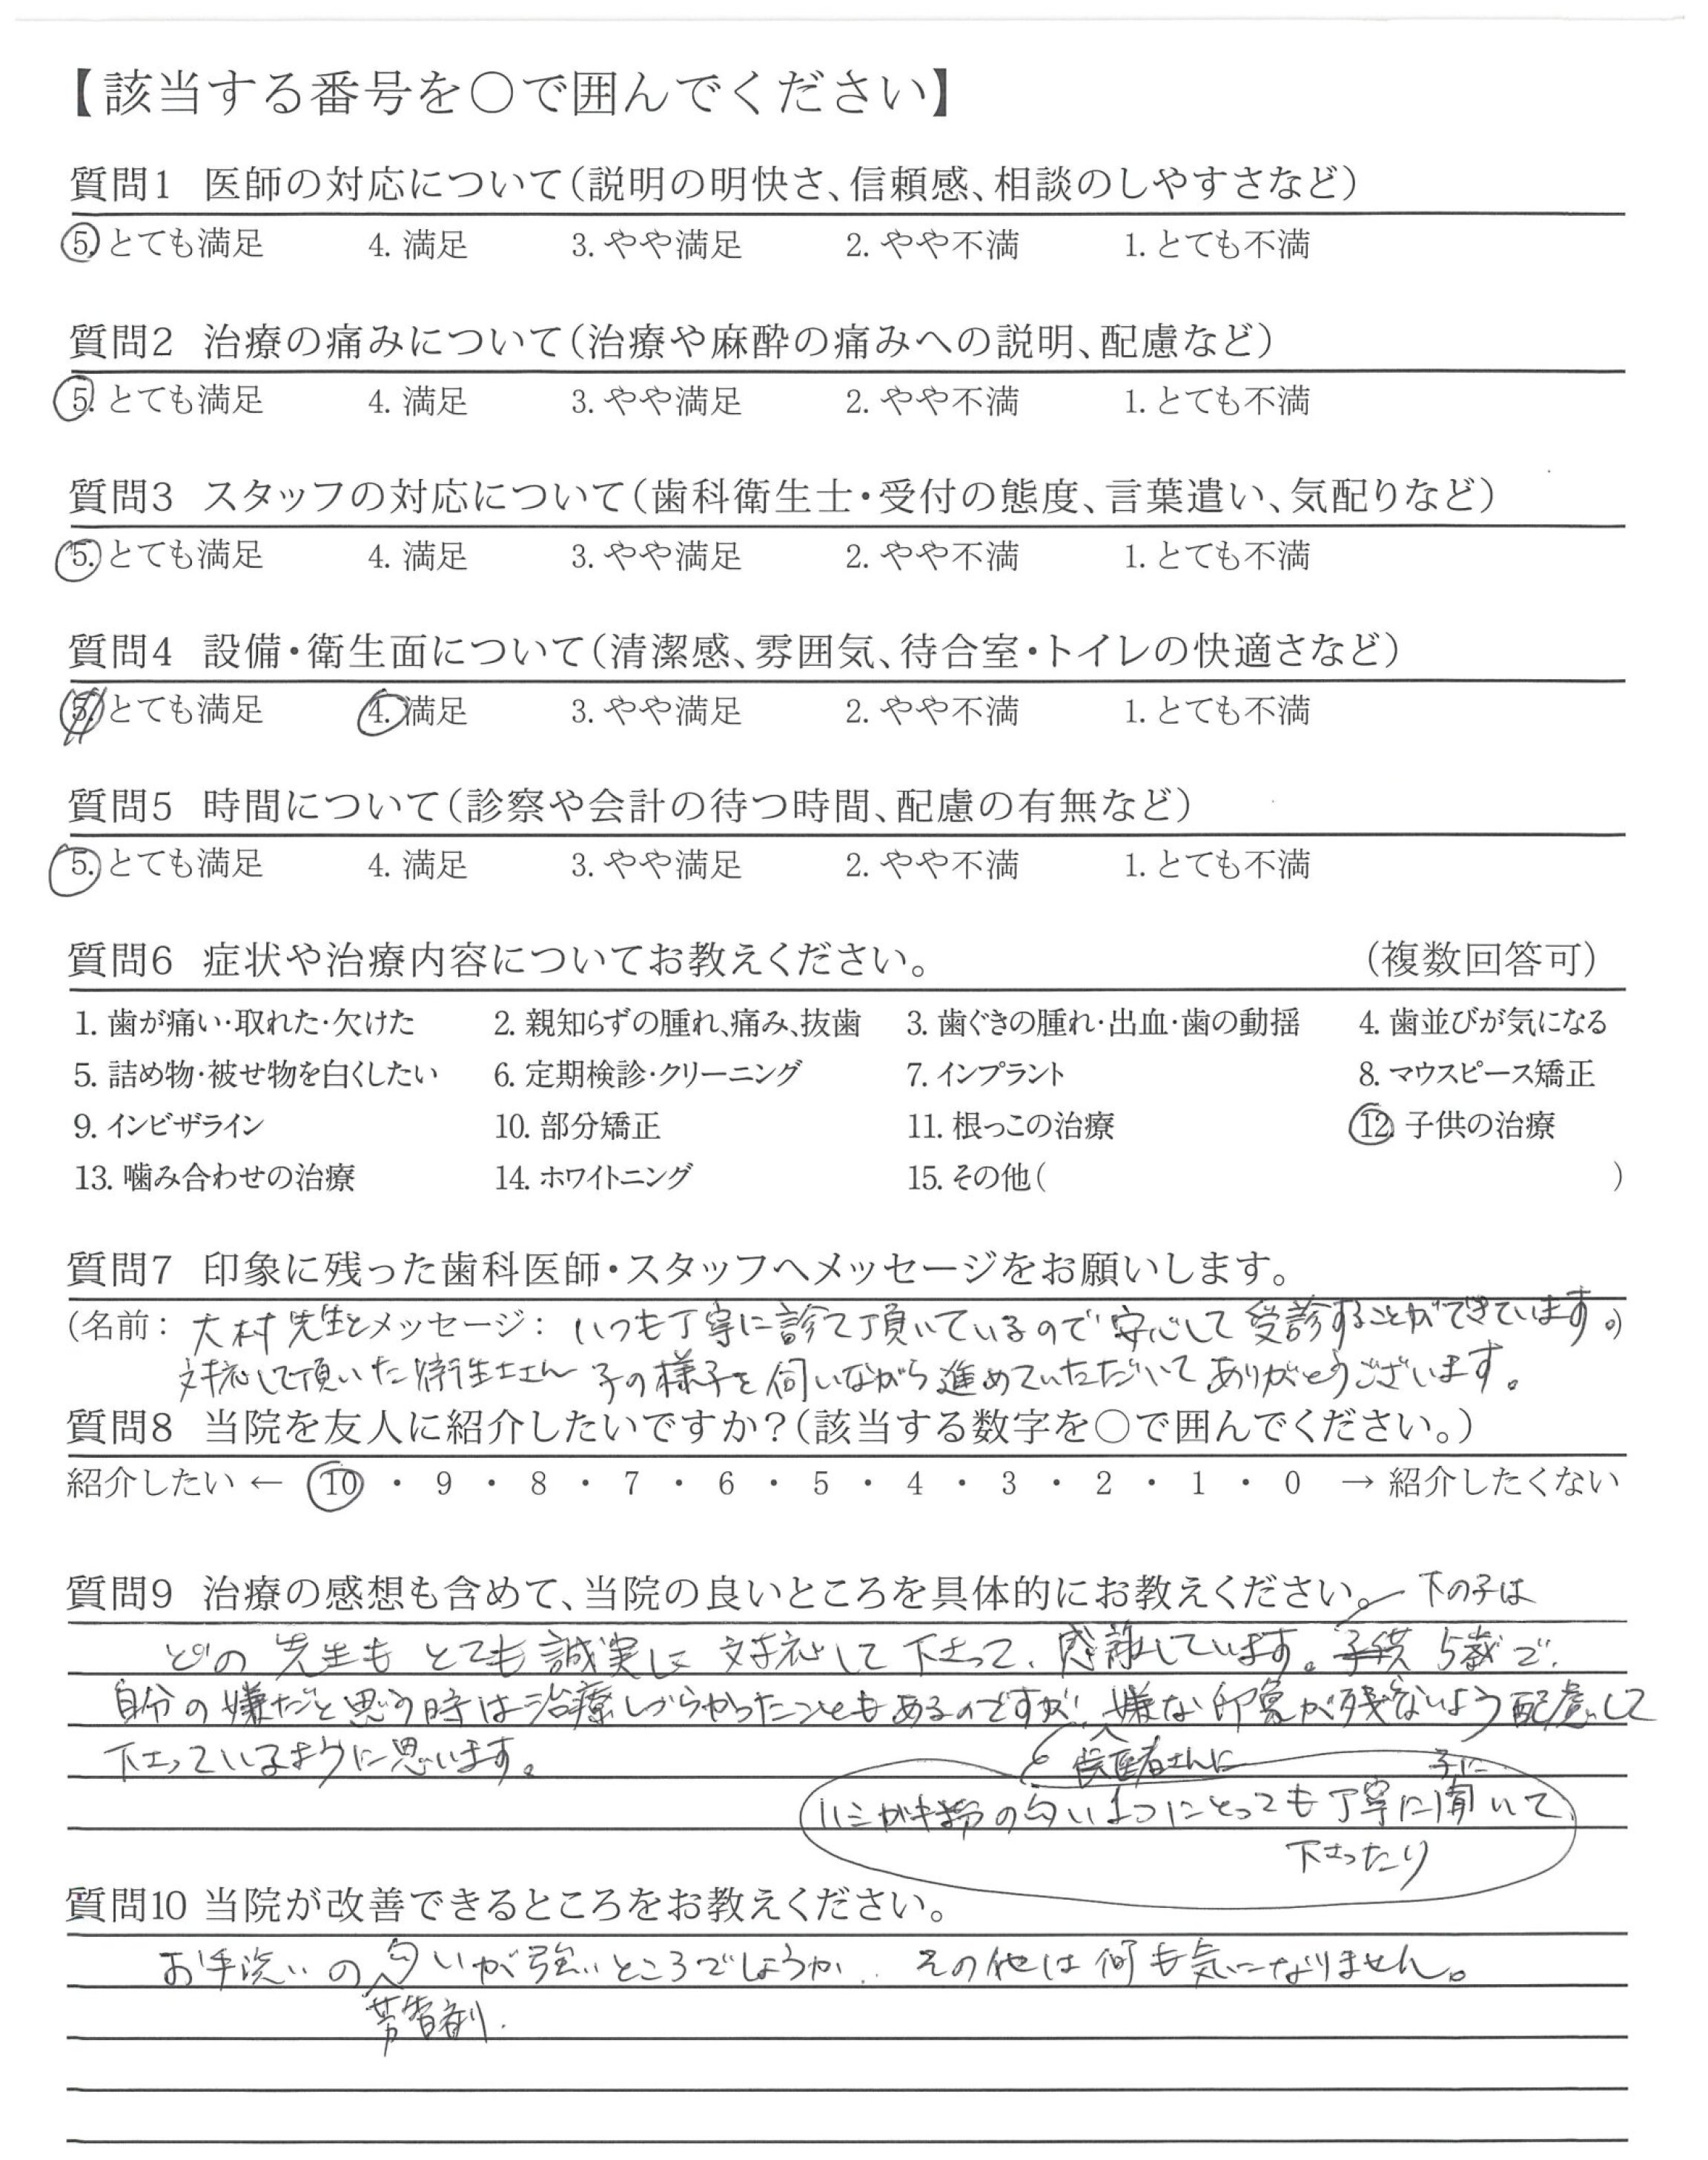 【該当する番号を○で囲んでください】
質問1 医師の対応について（説明の明快さ、信頼感、相談のしやすさなど）
5. とても満足 4. 満足 3. やや満足 2. やや不満 1. とても不満
質問2 治療の痛みについて（治療や麻酔の痛みへの説明、配慮など）
5. とても満足 4. 満足 3. やや満足 2. やや不満 1. とても不満
質問3 スタッフの対応について（歯科衛生士・受付の態度、言葉遣い、気配りなど）
5. とても満足 4. 満足 3. やや満足 2. やや不満 1. とても不満
質問4 設備・衛生面について（清潔感、雰囲気、待合室・トイレの快適さなど）
5. とても満足 4. 満足 3. やや満足 2. やや不満 1. とても不満
質問5 時間について（診察や会計の待つ時間、配慮の有無など）
5. とても満足 4. 満足 3. やや満足 2. やや不満 1. とても不満
質問6 症状や治療内容についてお教えください。 （複数回答可）
1. 歯が痛い・取れた・欠けた 2. 親知らずの腫れ、痛み、抜歯 3. 歯ぐきの腫れ・出血・歯の動揺 4. 歯並びが気になる
5. 詰め物・被せ物を白くしたい 6. 定期検診・クリーニング 7. インプラント 8. マウスピース矯正
9. インビザライン 10. 部分矯正 11. 根っこの治療 12. 子供の治療
13. 噛み合わせの治療 14. ホワイトニング 15. その他（ ）
質問7 印象に残った歯科医師・スタッフへメッセージをお願いします。
（名前： 大村先生と メッセージ： いつも丁寧に診て頂いているので安心して受診することができています。）
対応して頂いた衛生士さん 子の様子を伺いながら進めていただいてありがとうございます。
質問8 当院を友人に紹介したいですか？（該当する数字を○で囲んでください。）
紹介したい ← 10 ・ 9 ・ 8 ・ 7 ・ 6 ・ 5 ・ 4 ・ 3 ・ 2 ・ 1 ・ 0 → 紹介したくない
質問9 治療の感想も含めて、当院の良いところを具体的にお教えください。 下の子は
どの先生もとても誠実に対応して下さって、感謝しています。子供 5歳で、
自分の嫌だと思う時は治療しづらかったこともあるのですが、嫌な印象が残らないよう配慮して
下さっているように思います。
歯医者さんに 子に
ハミガキ粉の匂い1つにとっても丁寧に聞いて
下さったり
質問10 当院が改善できるところをお教えください。
お手洗いの匂いが強いところでしょうか… その他は何も気になりません。
芳香剤.